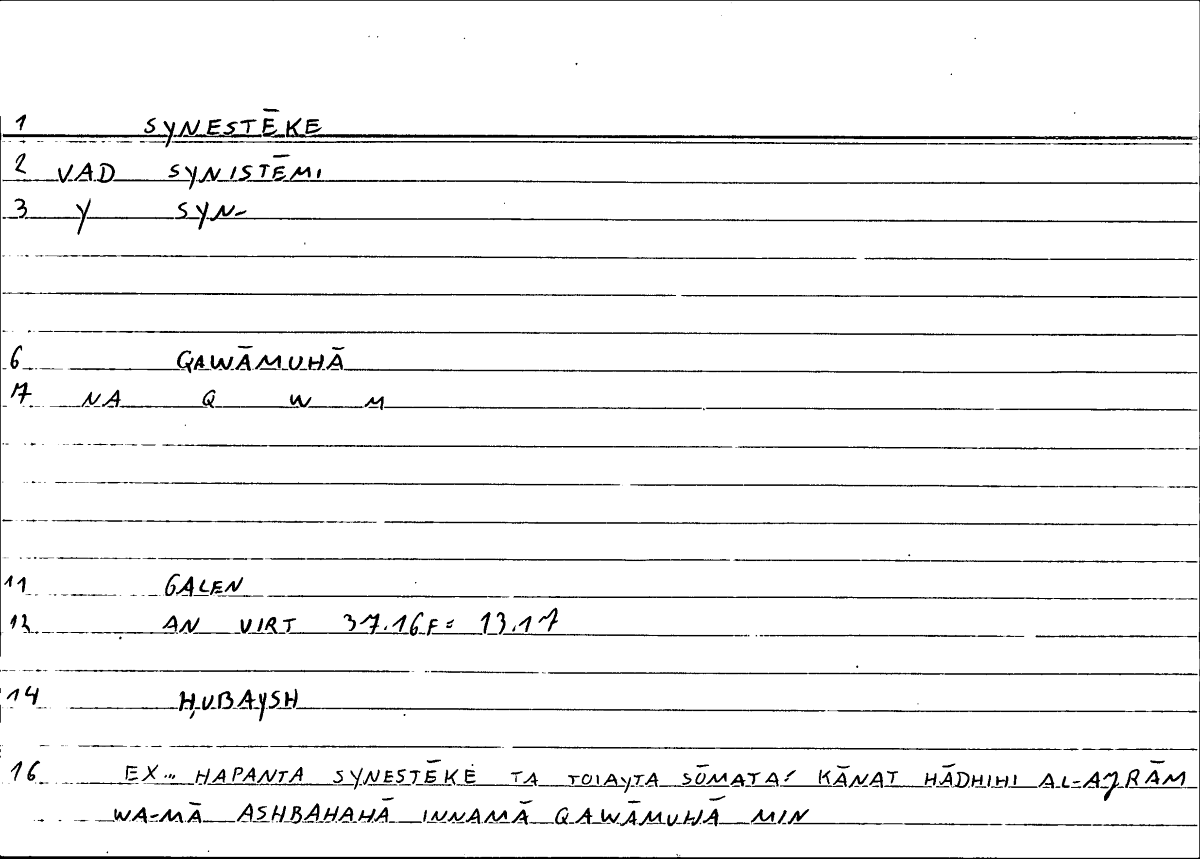 1 SYNESTĒKE
2 VAD SYNISTĒMI
3 Y SYN-
6 QAWĀMUHĀ
7 NA Q W M
11 GALEN
12 AN VIRT 37.16F= 13.17
14 ḤUBAYSH
16 EX... HAPANTA SYNESTĒKE TA TOIAYTA SŌMATA: KĀNAT HĀDHIHI AL-AJRĀM
WA-MĀ ASHBAHAHĀ INNAMĀ QAWĀMUHĀ MIN